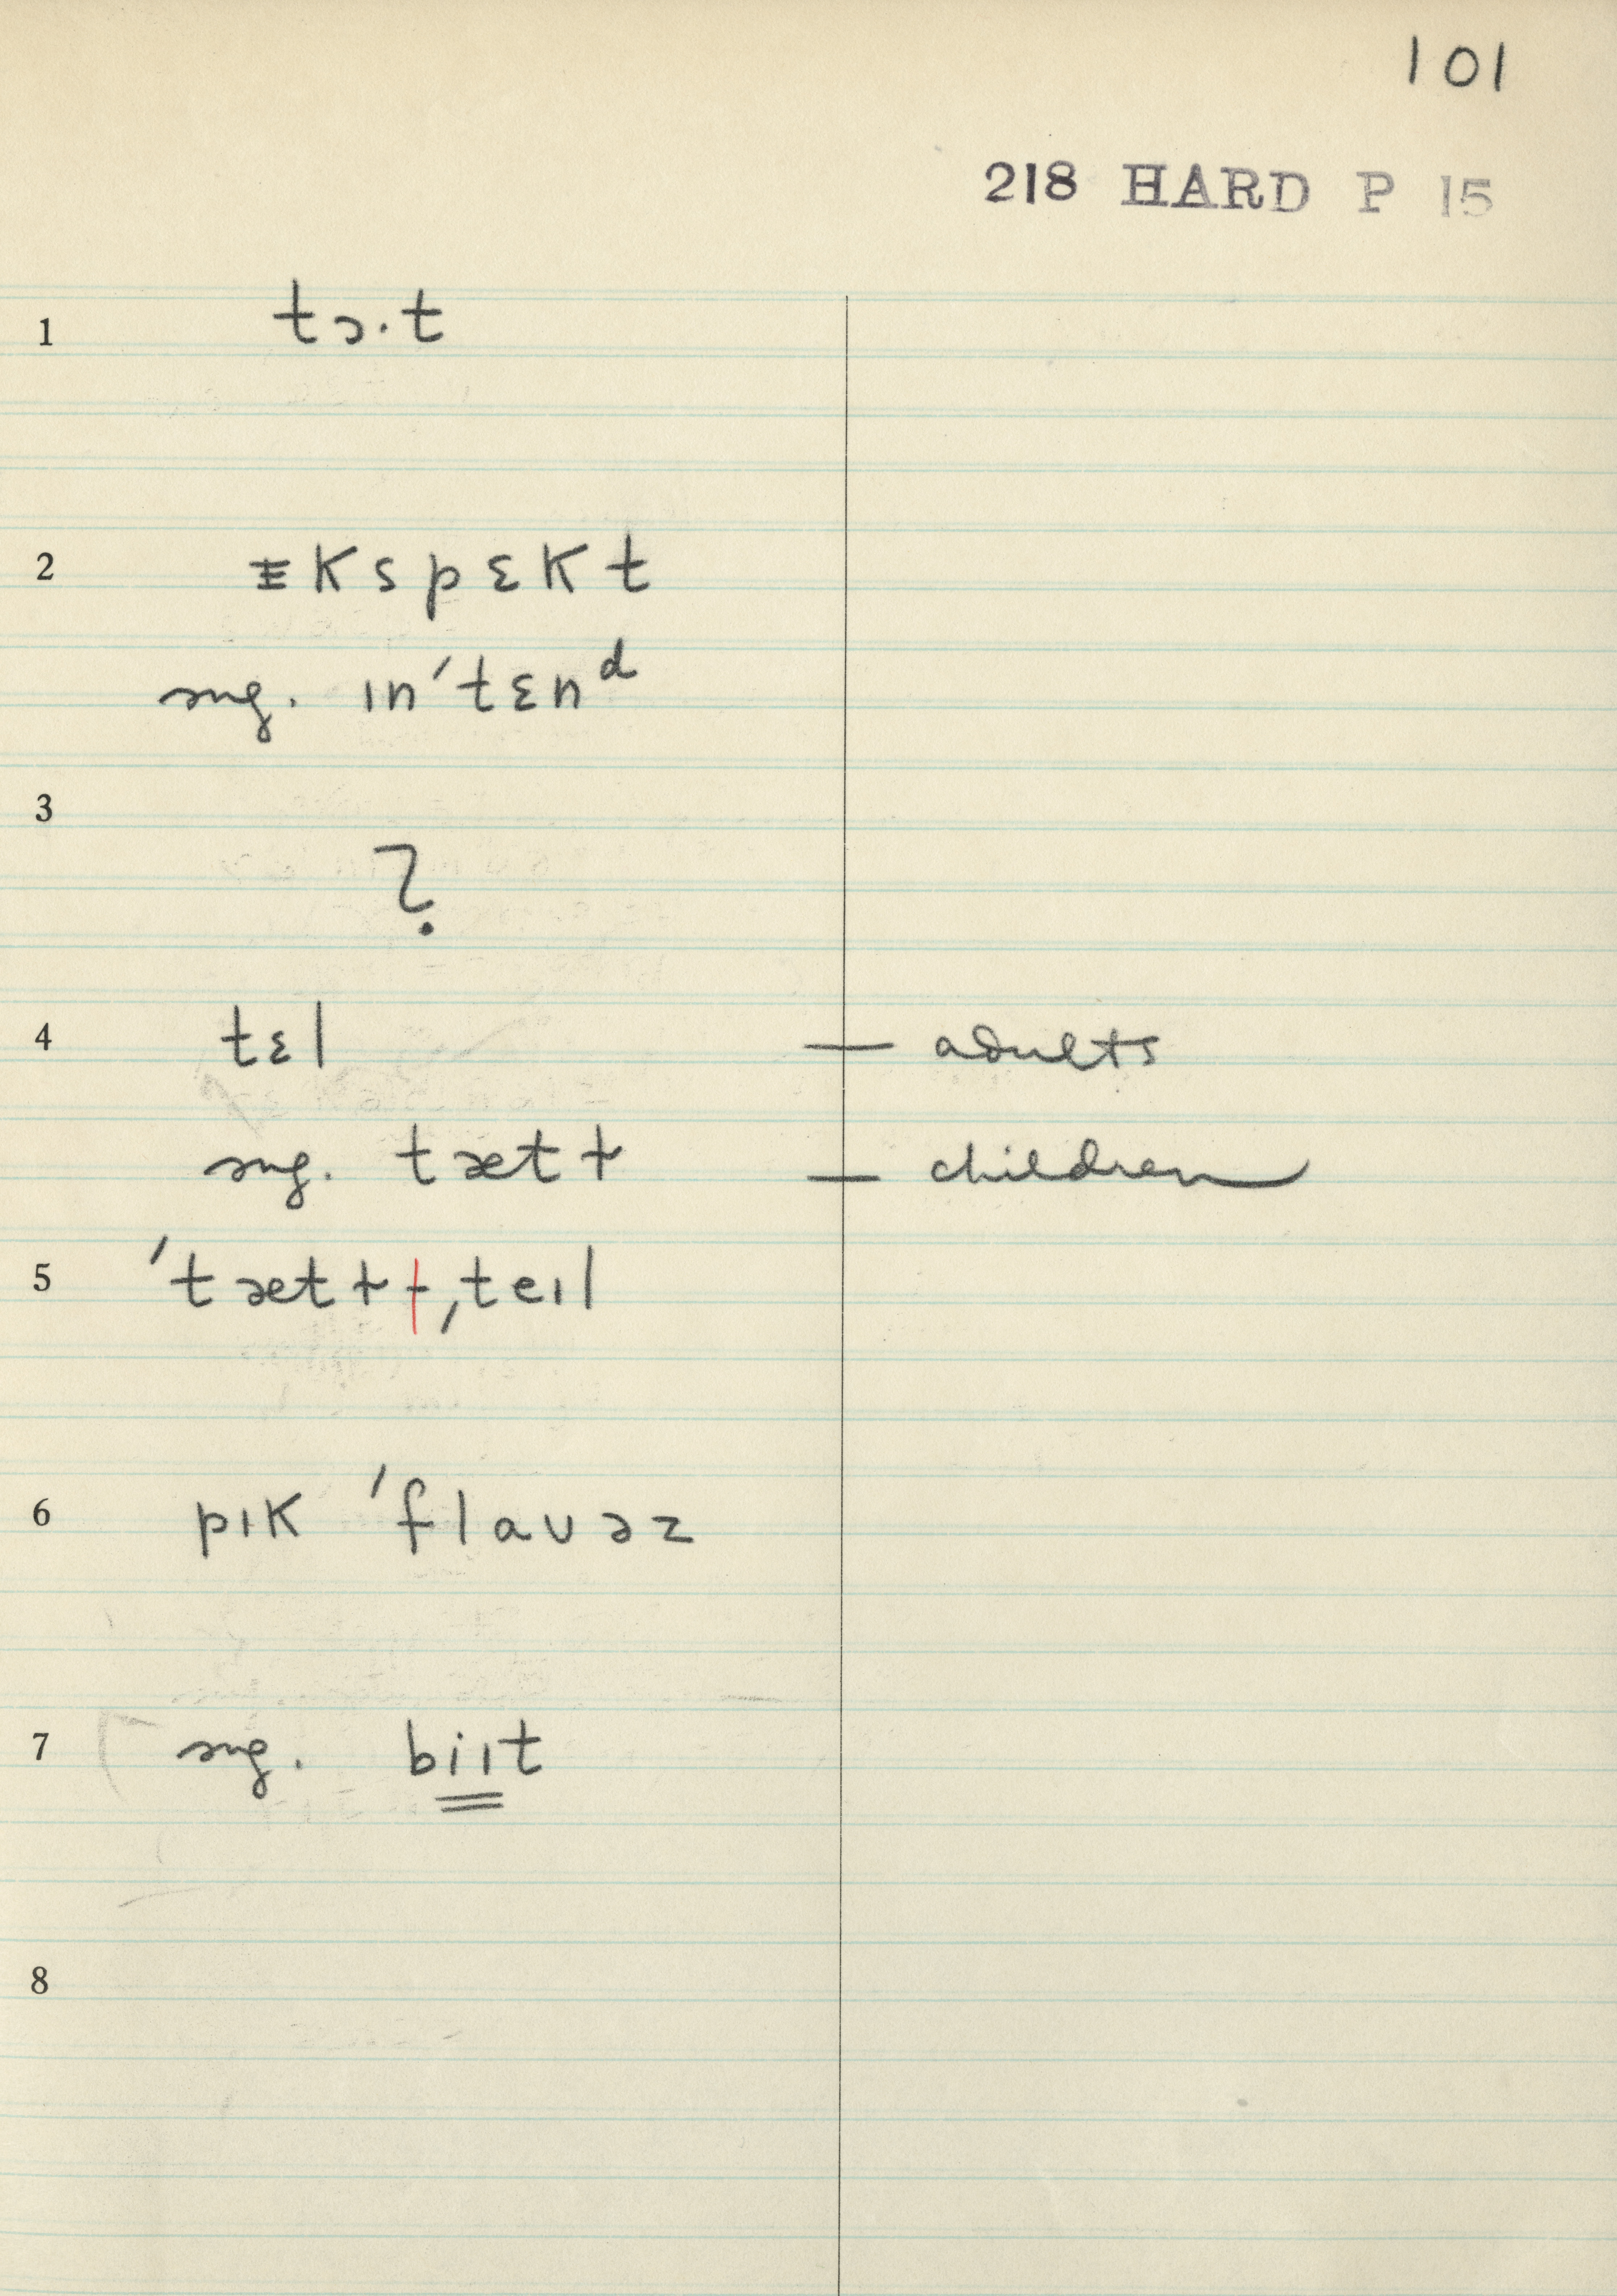 101
218 HARD P 15
1 tɔ·t
2 ᵻkspɛkt
sug. ɪn'tɛnᵈ
3
?
4 tɛl — adults
sug. tætɫ — children
5 'tætɫ ,teɪl
6 pɪk 'flaʊəz
7 sug. biɪt
8